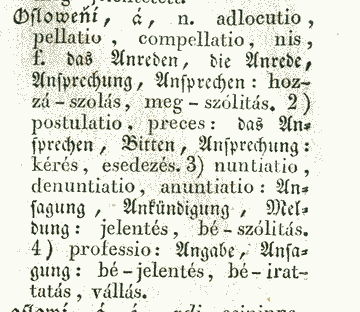 Osloweňí, á, n. adlocutio,
pellatio, compellatio, nis,
f. das Anreden, die Anrede,
Ansprechung, Ansprechen: hoz-
zá-szolás, meg-szólitás. 2)
postulatio, preces: das An-
sprechen, Bitten, Ansprechung:
kérés, esedezés. 3) nuntiatio,
denuntiatio, anuntiatio: An-
sagung, Ankündigung, Mel-
dung: jelentés, bé-szólitás.
4) professio: Angabe, Ansa-
gung: bé-jelentés, bé-irat-
tatás, vállás.